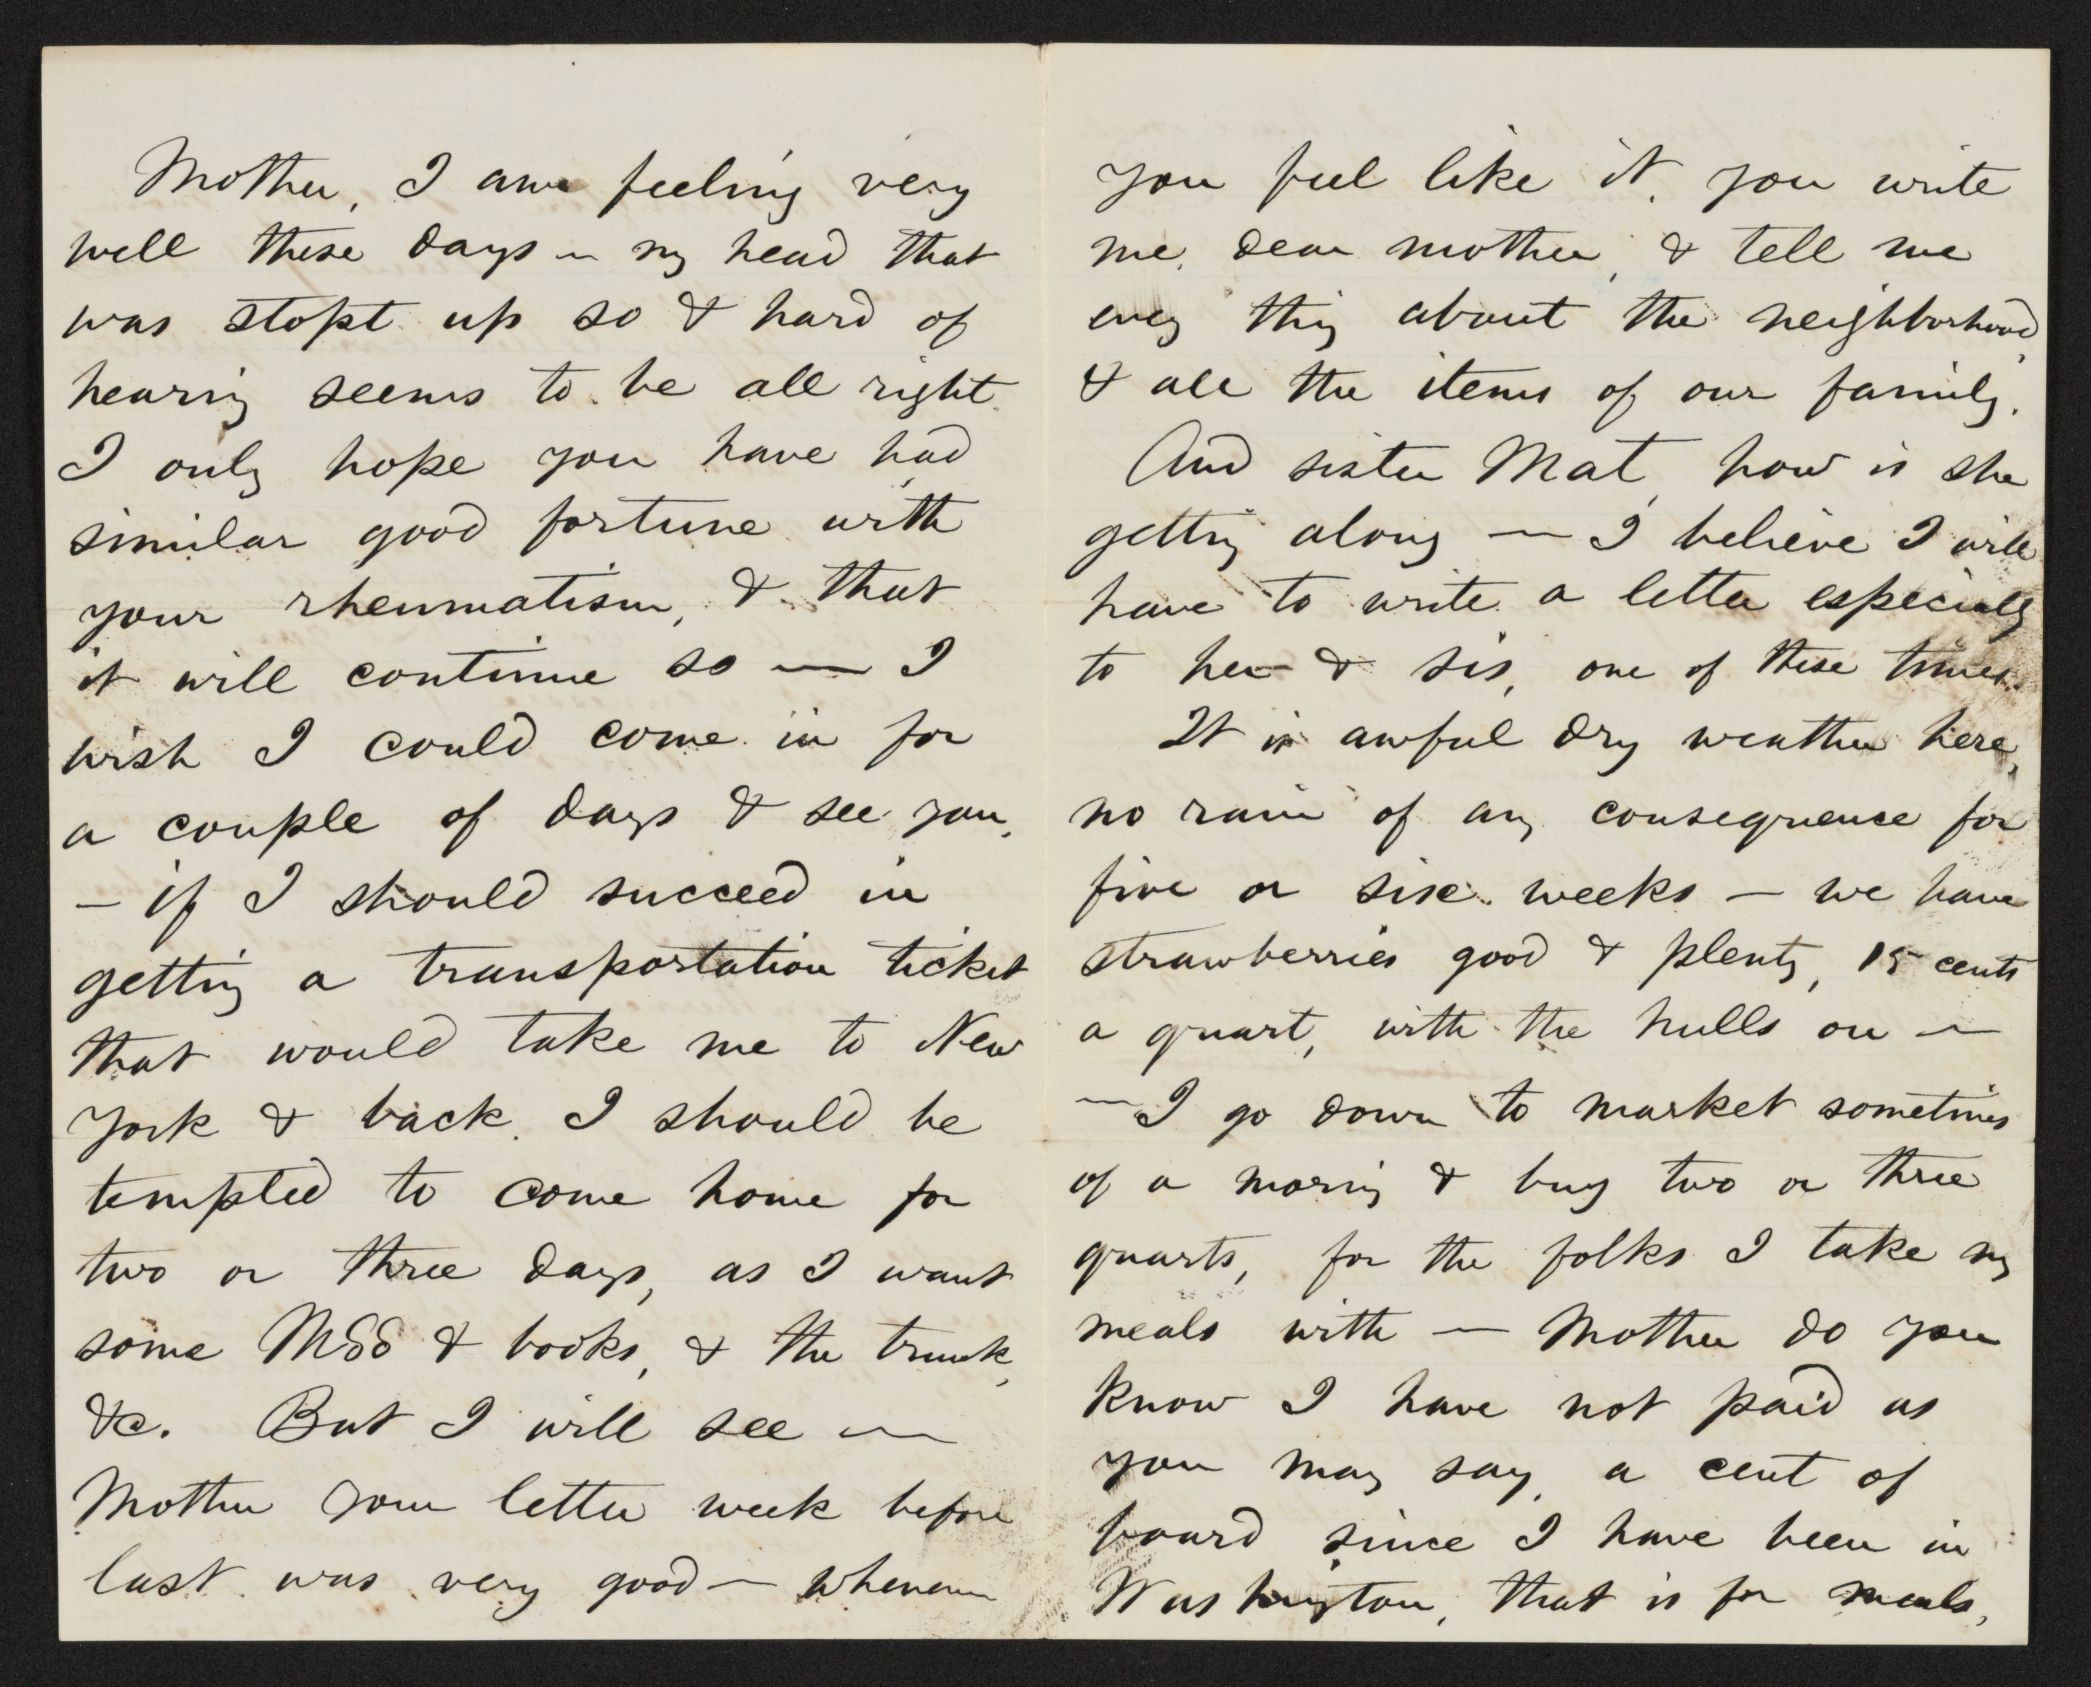 Mother, I am feeling very
well these days — my head that
was stopt up so & hard of
hearing seems to be all right.
I only hope you have had
similar good fortune with
your rheumatism, & that
it will continue so — I
wish I could come in for
a couple of days & see you,
— if I should succeed in
getting a transportation ticket
that would take me to New
York & back, I should be
tempted to come home for
two or three days, as I want
some MSS & books, & the trunk,
&c. But I will see —
Mother your letter week before
last was very good — whenever
you feel like it, you write
me, dear mother, & tell me
every thing about the neighborhood
& all the items of our family.
And sister Mat, how is she
getting along — I believe I will
have to write a letter especially
to her & sis, one of these times.
It is awful dry weather here,
no rain of any consequence for
five or six weeks — we have
strawberries good & plenty, 15 cents
a quart, with the hulls on —
— I go down to market sometimes
of a morning & buy two or three
quarts, for the folks I take my
meals with — Mother do you
know I have not paid as
you may say, a cent of
board since I have been in
Washington, that is for meals,